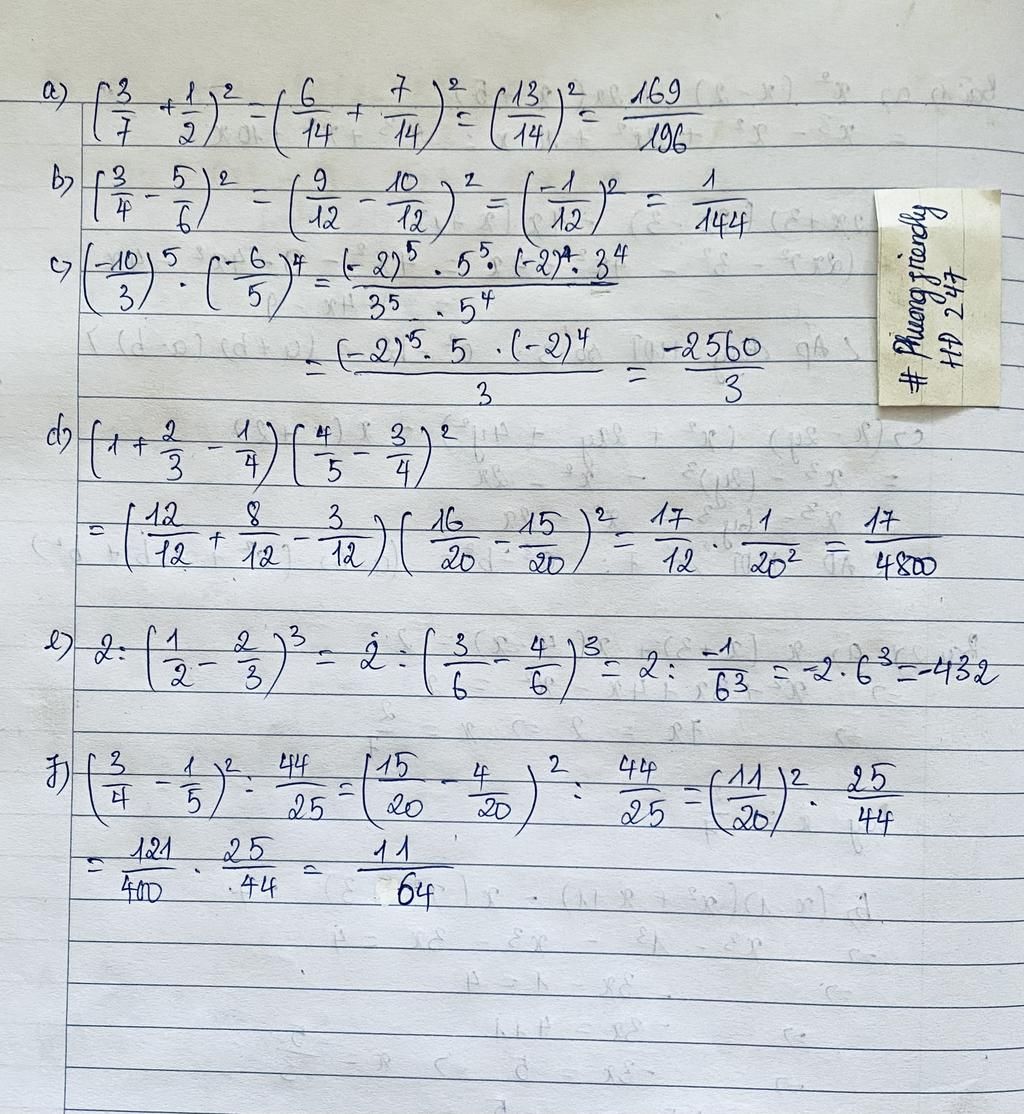 a) (3/7 + 1/2)² = (6/14 + 7/14)² = (13/14)² = 169/196
b) (3/4 - 5/6)² = (9/12 - 10/12)² = (-1/12)² = 1/144
c) (-10/3)⁵ . (-6/5)⁴ = (-2)⁵ . 5⁵ . (-2)⁴ . 3⁴ / 3⁵ . 5⁴
= (-2)⁵ . 5 . (-2)⁴ / 3 = -2560/3
d) (1 + 2/3 - 1/4) (4/5 - 3/4)²
= (12/12 + 8/12 - 3/12) (16/20 - 15/20)² = 17/12 . 1/20² = 17/4800
e) 2 : (1/2 - 2/3)³ = 2 : (3/6 - 4/6)³ = 2 : -1/6³ = -2 . 6³ = -432
f) (3/4 - 1/5)² : 44/25 = (15/20 - 4/20)² : 44/25 = (11/20)² . 25/44
= 121/400 . 25/44 = 11/64
# Phuongfriendly
HD 247